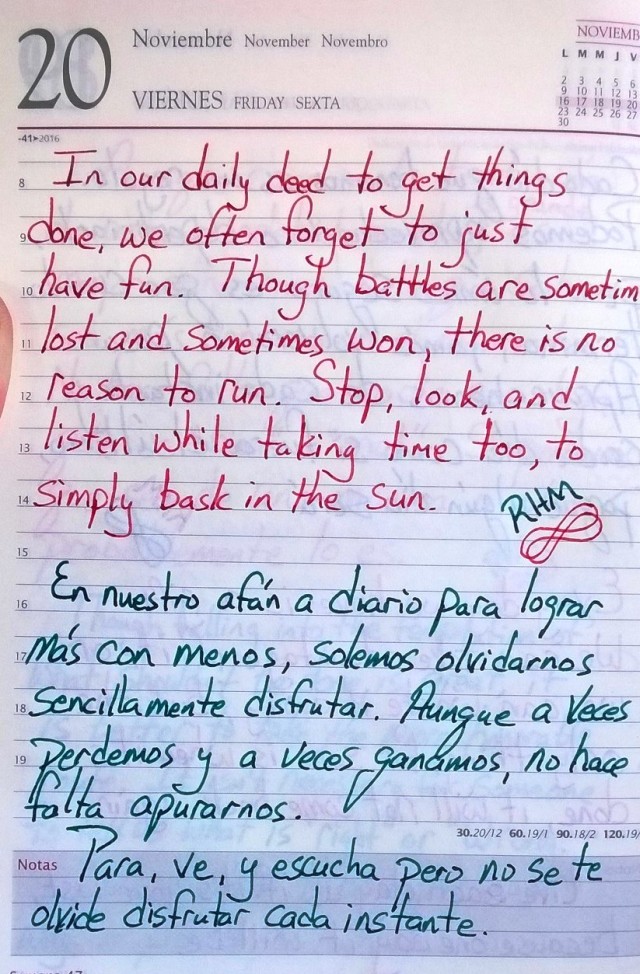 20 Noviembre November Novembro
VIERNES FRIDAY SEXTA
NOVIEMB
L M M J V
2 3 4 5 6
9 10 11 12 13
16 17 18 19 20
23 24 25 26 27
30
-41>2016
8 In our daily deed to get things
9 done, we often forget to just
10 have fun. Though battles are sometim
11 lost and sometimes won, there is no
12 reason to run. Stop, look, and
13 listen while taking time too, to
14 simply bask in the sun. RHM
15
16 En nuestro afán a diario para lograr
17 más con menos, solemos olvidarnos
18 sencillamente disfrutar. Aunque a veces
19 perdemos y a veces ganamos, no hace
falta apurarnos.
30.20/12 60.19/1 90.18/2 120.19/
Notas Para, ve, y escucha pero no se te
olvide disfrutar cada instante.